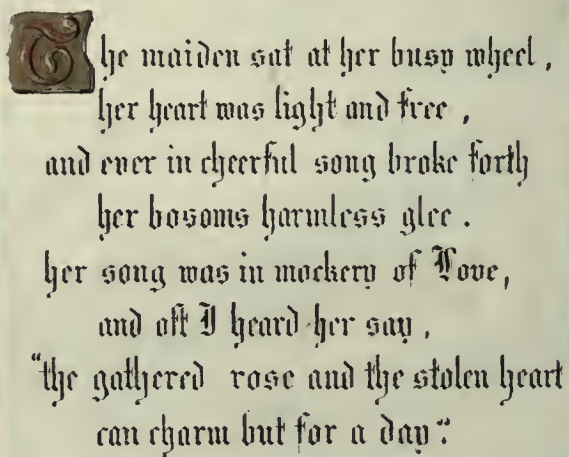 The maiden sat at her busy wheel,
her heart was light and free,
and ever in cheerful song broke forth
her bosoms harmless glee.
her song was in mockery of Love,
and oft I heard her say,
"the gathered rose and the stolen heart
can charm but for a day."